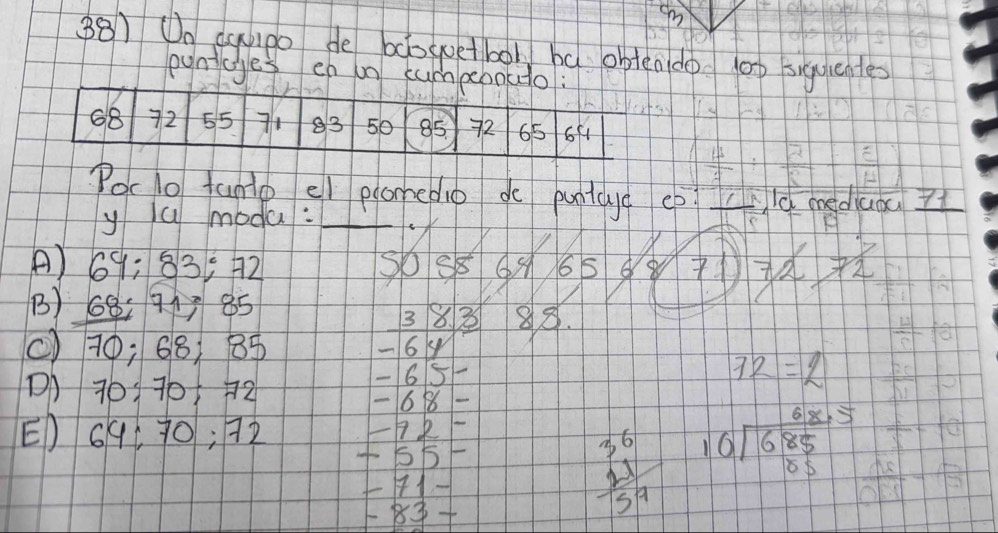 38) Un equipo de basquetbol, ha obtenido los siguientes
puntajes en un campeonato:
68 72 55 71 83 50 85 72 65 64
Por lo tanto el promedio de puntaje es: ___, la mediana 71
y la moda: ___.
A) 64; 83; 72
B) 68; 71; 85
C) 70; 68; 85
D) 70; 70; 72
E) 64; 70; 72
50 55 64 65 68 71 72 72
83 85.
3
-64
-65-
-68-
-72-
-55-
-71-
-83-
72 = 2
36
21
68.5
10 685
85